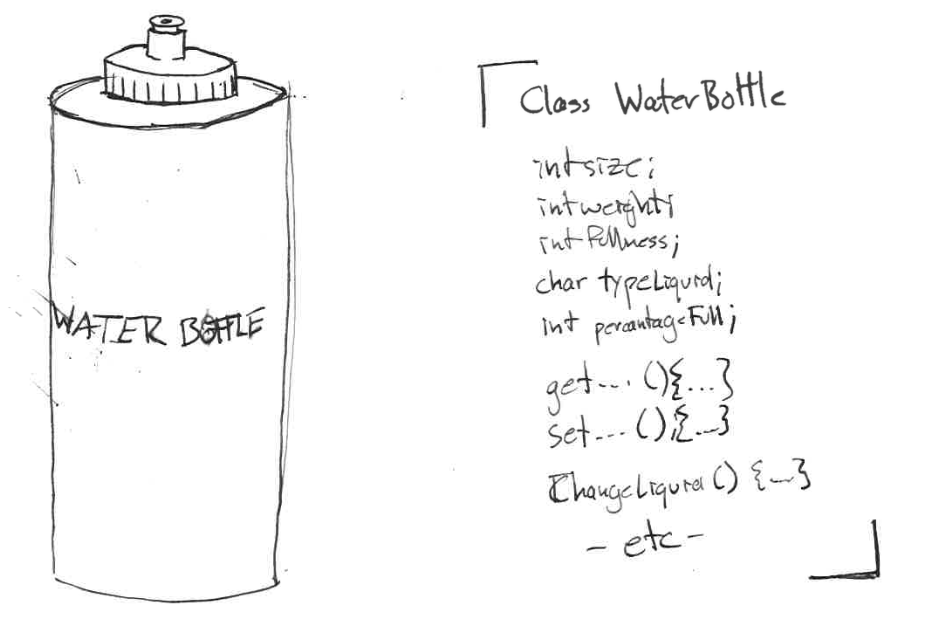 WATER BOTTLE
Class WaterBottle
int size;
int weight;
int fullness;
char typeLiquid;
int percantageFull;
get... () {...}
set... () {...}
ChangeLiquid () {...}
- etc -